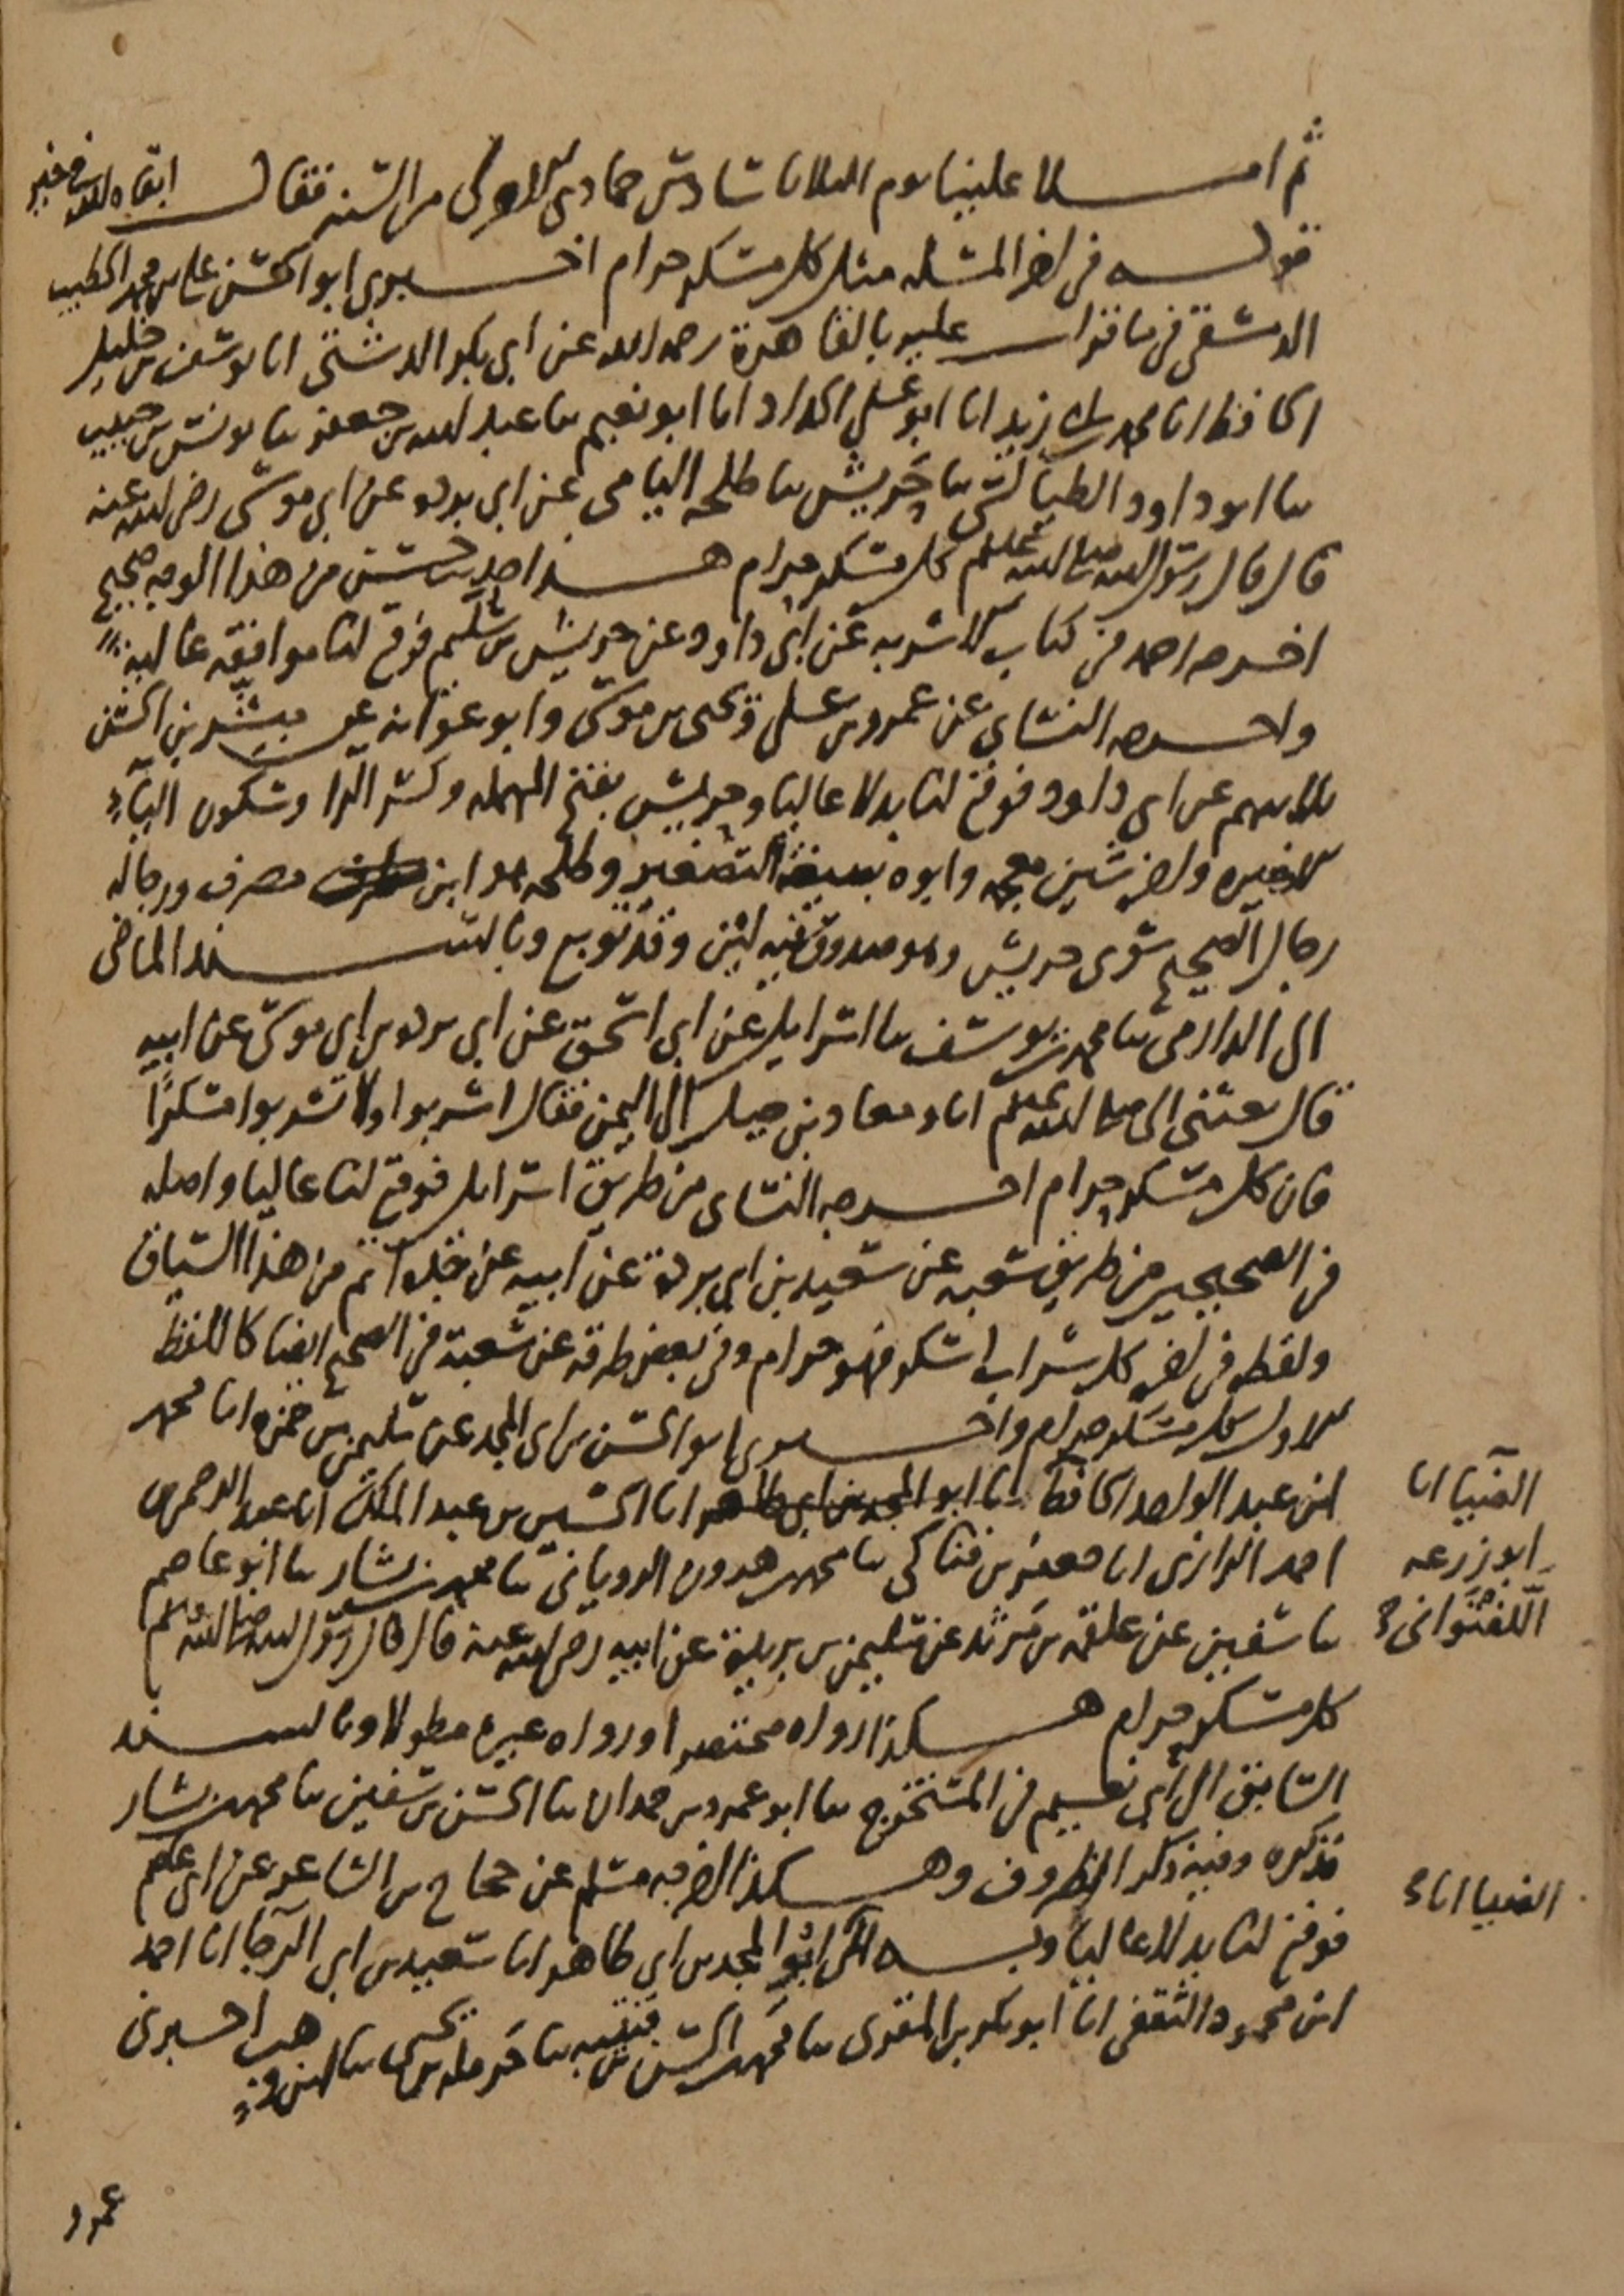 ثم املا علينا يوم الثلاثا سادس جمادى الاولى من السنة فقال ابقاه الله في خير
قوله في اخر المسئلة مثل كل مسكر حرام اخبرني ابو الحسن علي بن محمد الخطيب
الدمشقي فيما قرات عليه بالقاهرة رحمه الله عن ابي بكر الدشتي انا يوسف بن خليل
الحافظ انا محمد بن ابي زيد انا ابو علي الحداد انا ابو نعيم ثنا عبد الله بن جعفر ثنا يونس بن حبيب
ثنا ابو داود الطيالسي ثنا حريش ثنا طلحة اليامي عن ابي بردة عن ابي موسى رضي الله عنه
قال قال رسول الله صلى الله عليه وسلم كل مسكر حرام هذا حديث حسن من هذا الوجه صحيح
اخرجه احمد في كتاب الاشربة عن ابي داود عن حريش بن سليم فوقع لنا موافقة عالية
واخرجه النساي عن عمرو بن علي ويحيى بن موسى وابو عوانة عن مبشر بن الحسن
ثلاثتهم عن ابي داود فوقع لنا بدلا عاليا وحريش بفتح المهملة وكسر الرا وسكون الياء
الاخيره واخره شين معجمه وابوه بصيغة التصغير وطلحة هو ابن مصرف ورجاله
رجال الصحيح سوى حريش وهو صدوق فيه لين وقد توبع وبالسند الماضي
الى الدارمي ثنا محمد بن يوسف ثنا اسرايل عن ابي اسحق عن ابي بردة بن ابي موسى عن ابيه
قال بعثني النبي صلى الله عليه وسلم انا ومعاذ بن جبل الى اليمن فقال اشربوا ولا تشربوا مسكرًا
فان كل مسكر حرام اخرجه النساي من طريق اسرايل فوقع لنا عاليا واصله
في الصحيحين من طريق شعبه عن سعيد بن ابي بردة عن ابيه عن جده اتم من هذا السياق
ولفظه في اخره كل شراب اسكر فهو حرام وفي بعض طرقه عن شعبة في الصحيح ايضا كاللفظ
الاول كل مسكر حرام واخبرني ابو الحسن بن ابي المجد عن سليمن بن حمزه انا محمد
ابن عبد الواحد الحافظ انا ابو المجد بن ابي طاهر انا الحسين بن عبد الملك انا عبد الرحمن بن
احمد الرازي انا جعفر بن فناكي ثنا محمد بن هرون الروياني ثنا محمد بن بشار ثنا ابو عاصم
ثنا سفين عن علقمة بن مرثد عن سليمن بن بريدة عن ابيه رضي الله عنه قال قال رسول الله صلى الله عليه وسلم
كل مسكر حرام هكذا رواه مختصرا ورواه غيره مطولا وبالسند
السابق الى ابي نعيم في المستخرج ثنا ابو عمرو بن حمدان ثنا الحسن بن سفين ثنا محمد بن بشار
فذكره وفيه ذكر الظروف وهكذا اخرجه مسلم عن حجاج بن الشاعر عن ابي عاصم
فوقع لنا بدلا عاليا وبه الى ابو المجد بن ابي طاهر انا سعيد بن ابي الرجا انا احمد
ابن محمود الثقفي انا ابو بكر بن المقري ثنا محمد بن الحسن بن قتيبه ثنا حرمله بن يحيى ثنا ابن وهب اخبرني
الضيا انا
ابو زرعه
اللفتواني
الضيا انا
عمرو